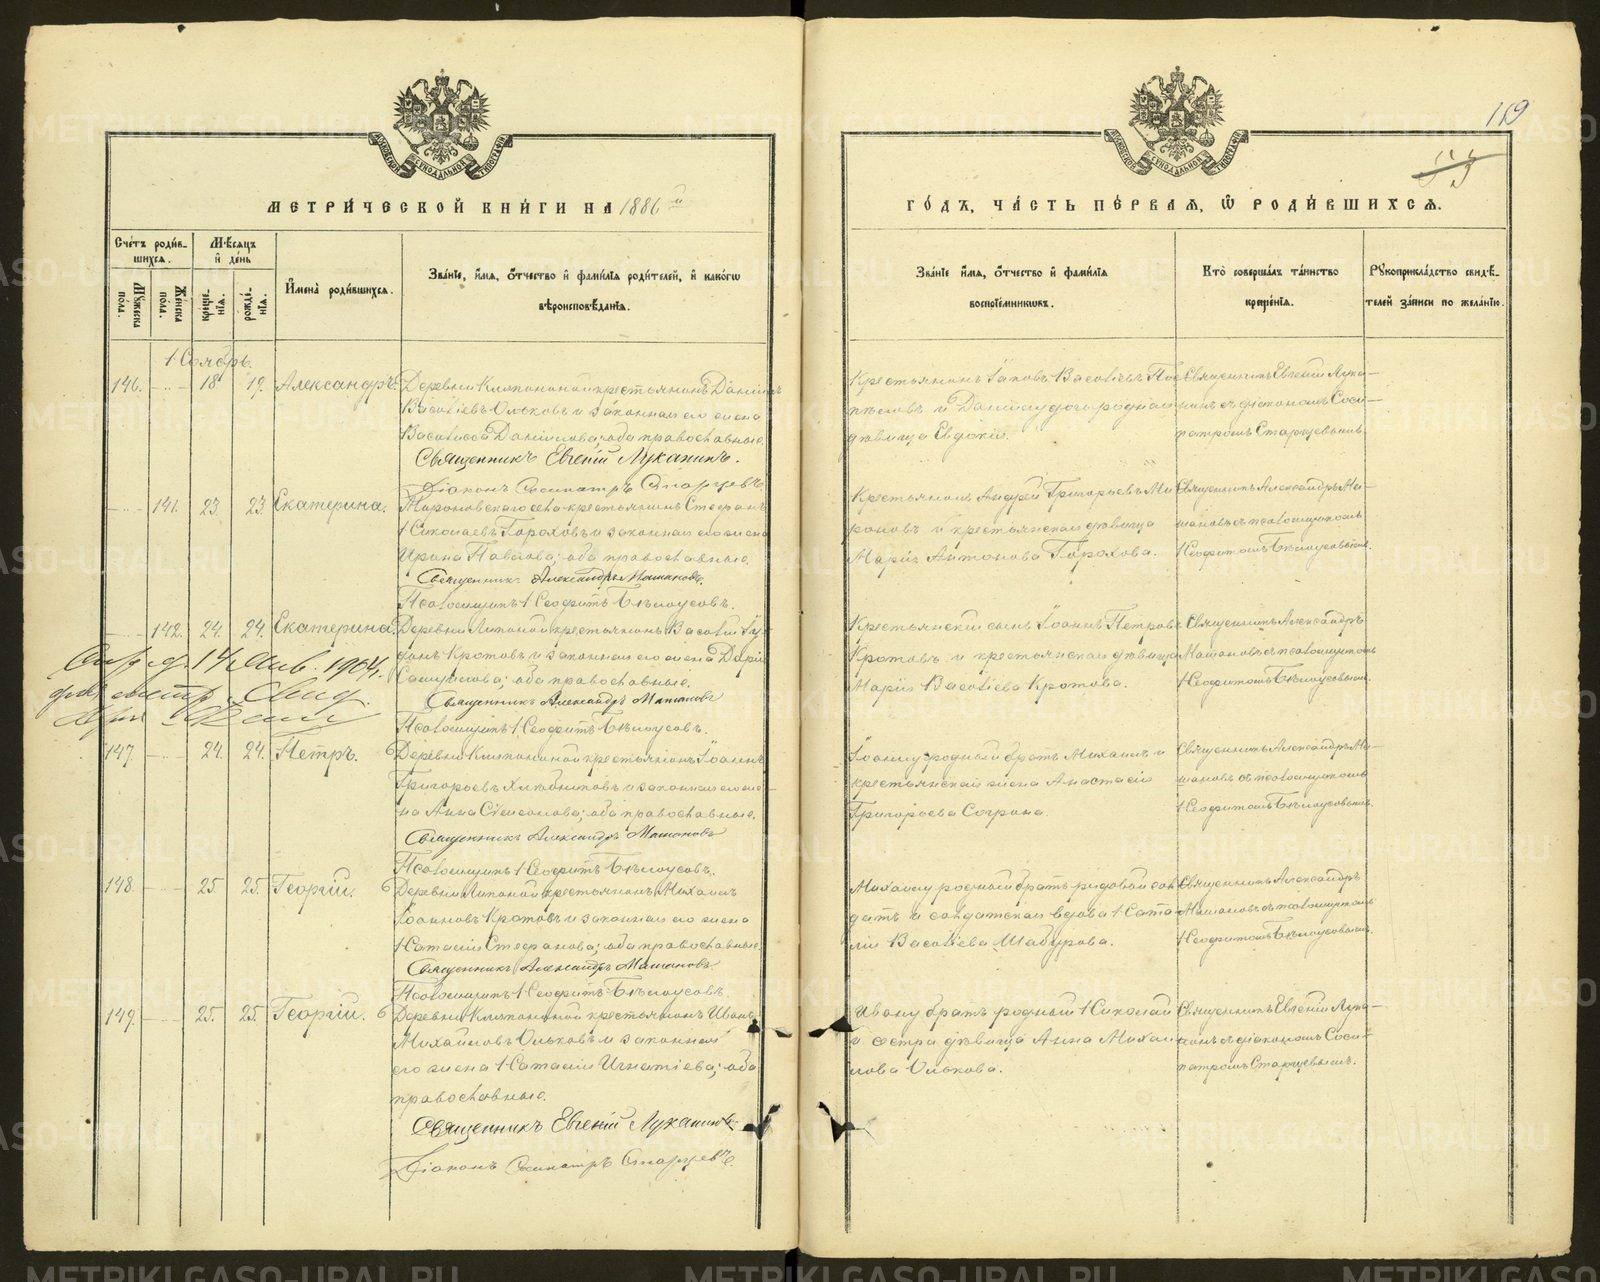 119
53
МЕТРИ́ЧЕСКОЙ КНИ́ГИ НА 1886й
ГО́ДЪ, ЧА́СТЬ ПЕ́РВАЯ, Ѡ РОДИ́ВШИХСЯ.
Сче́тъ роди́в-
шихся.
Мѣ́сяцъ
и҆ де́нь
Мꙋжеска
по́лꙋ.
Же́нска
по́лꙋ.
креще́-
нїя.
рожде́-
нїя.
И҆мена̀ роди́вшихся.
Зва́нїе, и҆́мя, ѻ҆́тчество и҆ фами́лїя роди́телей, и҆ како́гѡ
вѣроисповѣ́данїя.
Зва́нїе и҆́мя, ѻ҆́тчество и҆ фами́лїя
воспрїе́мникѡвъ.
Кто̀ соверша́лъ та́инство
креще́нїя.
Рꙋкоприкла́дство свидѣ́-
телей за́писи по жела́нїю.
Ноябрь.
146. 18 19. Александръ.
Деревни Кляпониной крестьянинъ Данiилъ
Васильевъ Ольковъ и законная его жена
Василиса Данiилова; оба православные.
Священникъ Евгенiй Луканинъ.
Дiаконъ Сосипатръ Старцевъ.
Крестьянинъ Iаковъ Васильевъ
и Данiилу дочь родная
дѣвица Евдокiя.
Священникъ Евгенiй Лука-
нинъ съ дiакономъ Соси-
патромъ Старцевымъ.
141. 23. 23 Екатерина.
Мироновскаго села крестьянинъ Стефанъ
Николаевъ Гороховъ и законная его жена
Ирина Павлова; оба православные.
Священникъ Александръ Машановъ.
Псаломщикъ Неофитъ Бѣлоусовъ.
Крестьянинъ Андрей Григорьевъ Ми-
роновъ и крестьянская дѣвица
Марiя Антонова Горохова.
Священникъ Александръ Ма-
шановъ съ псаломщикомъ
Неофитомъ Бѣлоусовымъ.
142. 24. 24. Екатерина.
Деревни Липиной крестьянинъ Василiй
Кротовъ и законная его жена Дарiя
Самуилова; оба православные.
Священникъ Александръ Машановъ
Псаломщикъ Неофитъ Бѣлоусовъ.
Крестьянскiй сынъ Iоаннъ Петровъ
Кротовъ и крестьянская дѣвица
Марiя Васильева Кротова.
Священникъ Александръ
Машановъ съ псаломщикомъ
Неофитомъ Бѣлоусовымъ.
14 Янв. 1904.
147. 24. 24. Петръ.
Деревни Кляпониной крестьянинъ Iоаннъ
Григорьевъ Хлѣбниковъ и законная его же-
на Анна Симеонова; оба православные.
Священникъ Александръ Машановъ
Псаломщикъ Неофитъ Бѣлоусовъ.
Iоанну родный братъ Михаилъ и
крестьянская жена Анастасiя
Григорьева Согрина.
Священникъ Александръ Ма-
шановъ съ псаломщикомъ
Неофитомъ Бѣлоусовымъ.
148. 25. 25. Георгiй.
Деревни Липиной крестьянинъ Михаилъ
Iоанновъ Кротовъ и законная его жена
Наталiя Стефанова; оба православные.
Священникъ Александръ Машановъ.
Псаломщикъ Неофитъ Бѣлоусовъ.
Михаилу родный братъ рядовой сол-
датъ и солдатская вдова Ната-
лiя Васильева Шабурова.
Священникъ Александръ
Машановъ съ псаломщикомъ
Неофитомъ Бѣлоусовымъ.
149. 25. 25. Георгiй.
Деревни Кляпониной крестьянинъ Иванъ
Михаиловъ Ольковъ и законная
его жена Наталiя Игнатiева; оба
православные.
Священникъ Евгенiй Луканинъ.
Дiаконъ Сосипатръ Старцевъ.
Ивану братъ родный Николай
и сестра дѣвица Анна Михаи-
лова Олькова.
Священникъ Евгенiй Лука-
нинъ съ дiакономъ Соси-
патромъ Старцевымъ.
METRIKI.GASO-URAL.RU